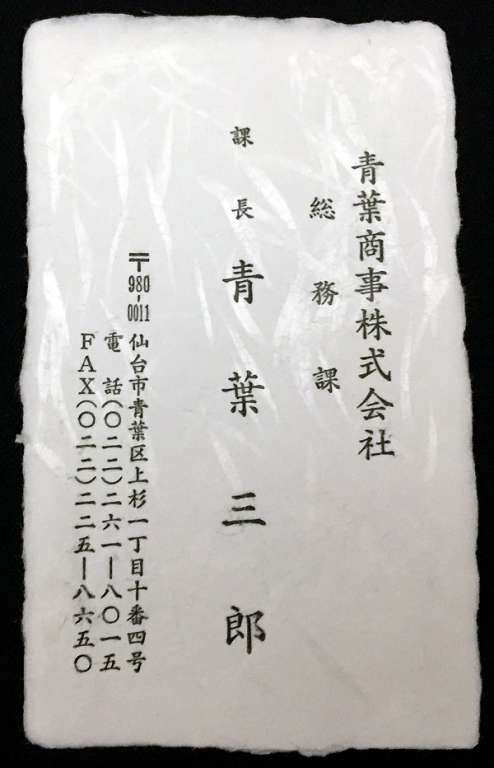 青葉商事株式会社
総務課
課長 青葉三郎
〒980-0011 仙台市青葉区上杉一丁目十番四号
電話(〇二二)二六一―八〇一五
FAX(〇二二)二二五―八六五〇